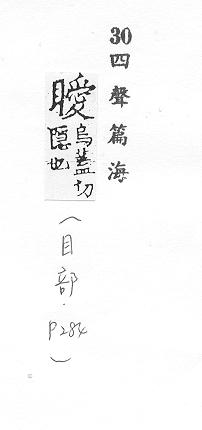 30四聲篇海
瞹烏蓋切
隱也
(目部.P284)